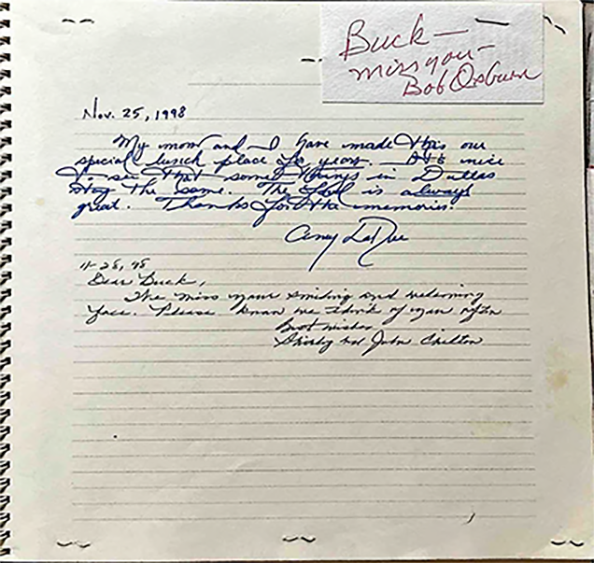 Buck —
miss you —
Bob Osburn
Nov. 25, 1998
My mom and I have made this our
special lunch place for years. It's nice
to see that some things in Dallas
stay the same. The food is always
great. Thanks for the memories.
Amy LaRue
11-28, 98
Dear Buck,
We miss your smiling and welcoming
face. Please know we think of you often
Best wishes
Shirley and John Chilton